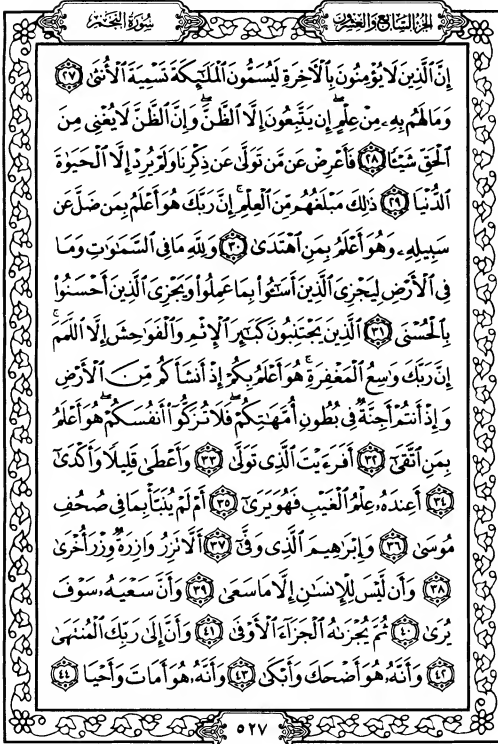 سُورَةُ النَّجْمِ
الجزء السابع والعشرون
إِنَّ ٱلَّذِينَ لَا يُؤْمِنُونَ بِٱلْـَٔاخِرَةِ لَيُسَمُّونَ ٱلْمَلَـٰٓئِكَةَ تَسْمِيَةَ ٱلْأُنثَىٰ ﴿٢٧﴾
وَمَا لَهُم بِهِۦ مِنْ عِلْمٍ ۖ إِن يَتَّبِعُونَ إِلَّا ٱلظَّنَّ ۖ وَإِنَّ ٱلظَّنَّ لَا يُغْنِى مِنَ
ٱلْحَقِّ شَيْـًٔا ﴿٢٨﴾ فَأَعْرِضْ عَن مَّن تَوَلَّىٰ عَن ذِكْرِنَا وَلَمْ يُرِدْ إِلَّا ٱلْحَيَوٰةَ
ٱلدُّنْيَا ﴿٢٩﴾ ذَٰلِكَ مَبْلَغُهُم مِّنَ ٱلْعِلْمِ ۚ إِنَّ رَبَّكَ هُوَ أَعْلَمُ بِمَن ضَلَّ عَن
سَبِيلِهِۦ وَهُوَ أَعْلَمُ بِمَنِ ٱهْتَدَىٰ ﴿٣٠﴾ وَلِلَّهِ مَا فِى ٱلسَّمَـٰوَٰتِ وَمَا
فِى ٱلْأَرْضِ لِيَجْزِىَ ٱلَّذِينَ أَسَـٰٓـُٔوا۟ بِمَا عَمِلُوا۟ وَيَجْزِىَ ٱلَّذِينَ أَحْسَنُوا۟
بِٱلْحُسْنَى ﴿٣١﴾ ٱلَّذِينَ يَجْتَنِبُونَ كَبَـٰٓئِرَ ٱلْإِثْمِ وَٱلْفَوَٰحِشَ إِلَّا ٱللَّمَمَ ۚ
إِنَّ رَبَّكَ وَٰسِعُ ٱلْمَغْفِرَةِ ۚ هُوَ أَعْلَمُ بِكُمْ إِذْ أَنشَأَكُم مِّنَ ٱلْأَرْضِ
وَإِذْ أَنتُمْ أَجِنَّةٌ فِى بُطُونِ أُمَّهَـٰتِكُمْ ۖ فَلَا تُزَكُّوٓا۟ أَنفُسَكُمْ ۖ هُوَ أَعْلَمُ
بِمَنِ ٱتَّقَىٰٓ ﴿٣٢﴾ أَفَرَءَيْتَ ٱلَّذِى تَوَلَّىٰ ﴿٣٣﴾ وَأَعْطَىٰ قَلِيلًا وَأَكْدَىٰٓ
﴿٣٤﴾ أَعِندَهُۥ عِلْمُ ٱلْغَيْبِ فَهُوَ يَرَىٰٓ ﴿٣٥﴾ أَمْ لَمْ يُنَبَّأْ بِمَا فِى صُحُفِ
مُوسَىٰ ﴿٣٦﴾ وَإِبْرَٰهِيمَ ٱلَّذِى وَفَّىٰٓ ﴿٣٧﴾ أَلَّا تَزِرُ وَازِرَةٌ وِزْرَ أُخْرَىٰ
﴿٣٨﴾ وَأَن لَّيْسَ لِلْإِنسَـٰنِ إِلَّا مَا سَعَىٰ ﴿٣٩﴾ وَأَنَّ سَعْيَهُۥ سَوْفَ
يُرَىٰ ﴿٤٠﴾ ثُمَّ يُجْزَىٰهُ ٱلْجَزَآءَ ٱلْأَوْفَىٰ ﴿٤١﴾ وَأَنَّ إِلَىٰ رَبِّكَ ٱلْمُنتَهَىٰ
﴿٤٢﴾ وَأَنَّهُۥ هُوَ أَضْحَكَ وَأَبْكَىٰ ﴿٤٣﴾ وَأَنَّهُۥ هُوَ أَمَاتَ وَأَحْيَا ﴿٤٤﴾
٥٢٧